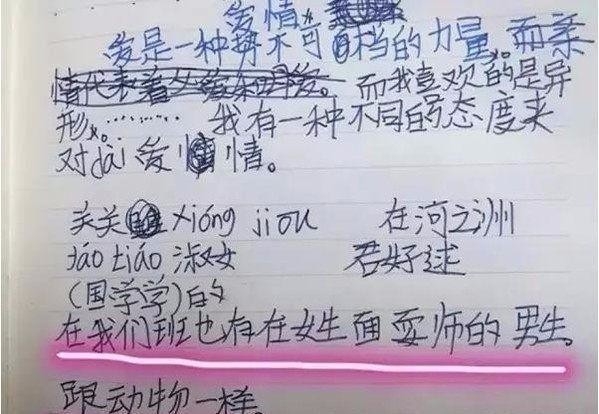 爱情
爱是一种势不可挡的力量。而亲
情代表着父爱和母爱。而我喜欢的是异
形。……… 我有一种不同的态度来
对dài 爱情。
关关 xióng jiou 在河之洲
táo tiáo 淑女 君好逑
(国学学)白勺
在我们班也存在女生面耍帅的男生。
跟动物一样。